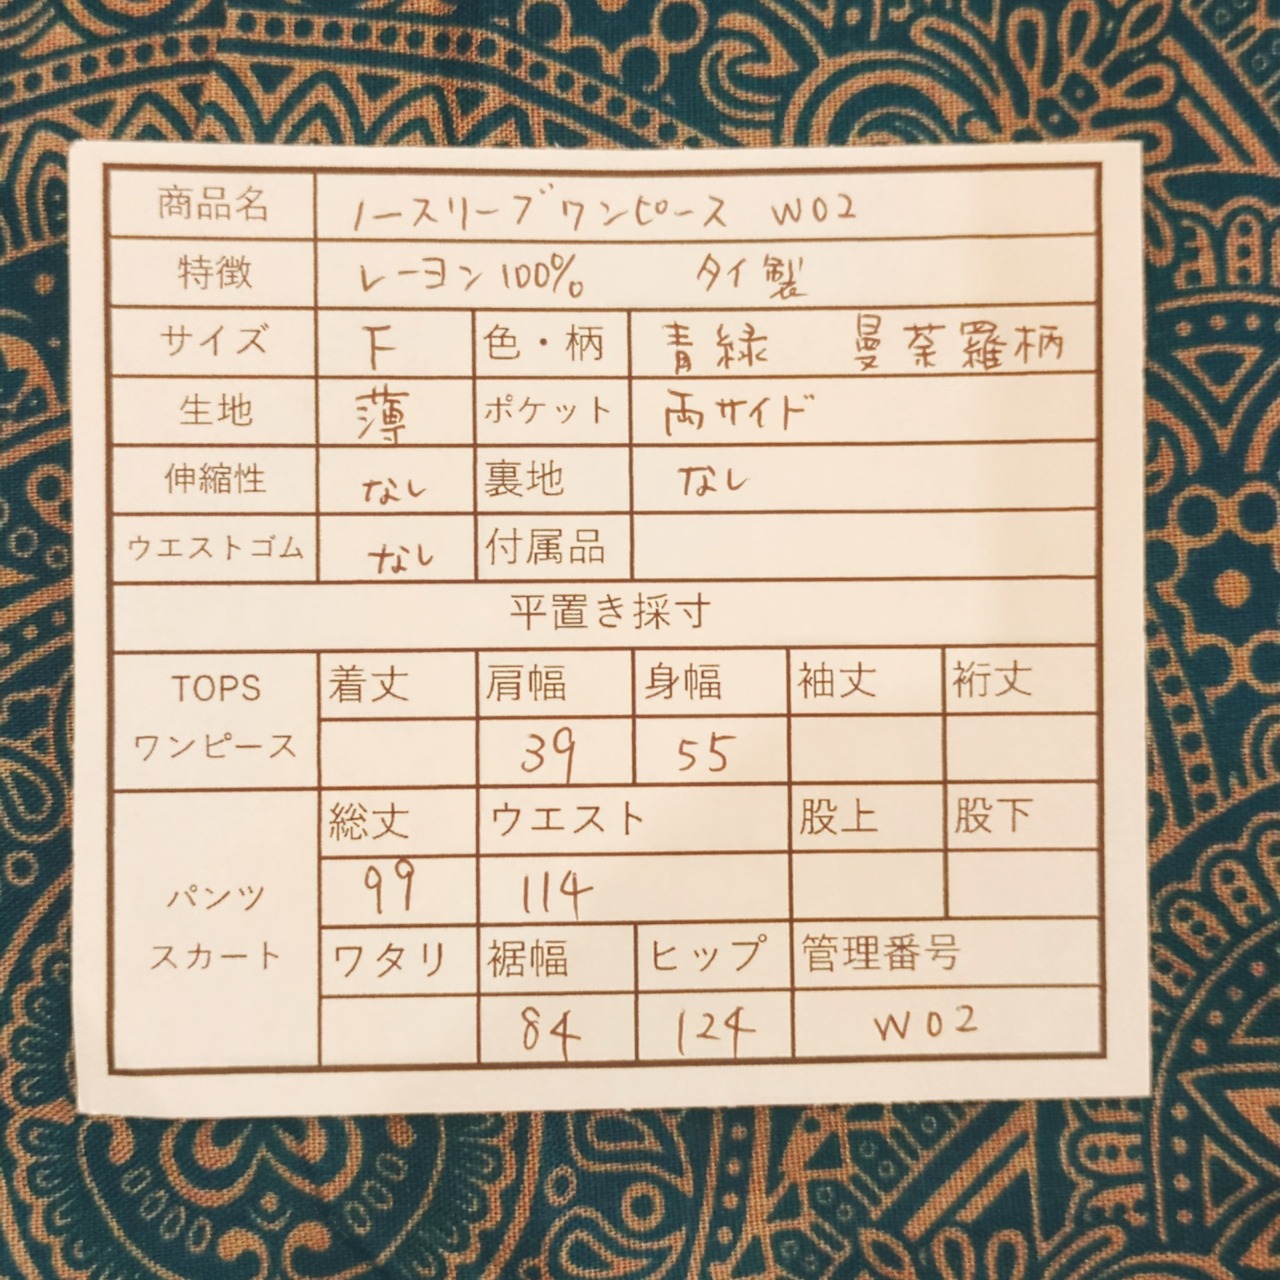 商品名 ノースリーブワンピース W02
特徴 レーヨン100% タイ製
サイズ F 色・柄 青緑 曼荼羅柄
生地 薄 ポケット 両サイド
伸縮性 なし 裏地 なし
ウエストゴム なし 付属品
平置き採寸
TOPS ワンピース 着丈 肩幅 身幅 袖丈 裄丈
39 55
パンツ スカート 総丈 ウエスト 股上 股下
99 114
ワタリ 裾幅 ヒップ 管理番号
84 124 W02